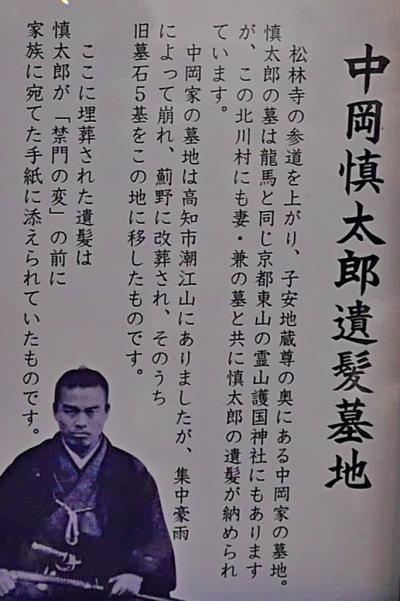 中岡慎太郎遺髪墓地
松林寺の参道を上がり、子安地蔵尊の奥にある中岡家の墓地。
慎太郎の墓は龍馬と同じ京都東山の霊山護国神社にもあります
が、この北川村にも妻・兼の墓と共に慎太郎の遺髪が納められ
ています。
中岡家の墓地は高知市潮江山にありましたが、集中豪雨
によって崩れ、薊野に改葬され、そのうち
旧墓石5基をこの地に移したものです。
ここに埋葬された遺髪は
慎太郎が「禁門の変」の前に
家族に宛てた手紙に添えられていたものです。